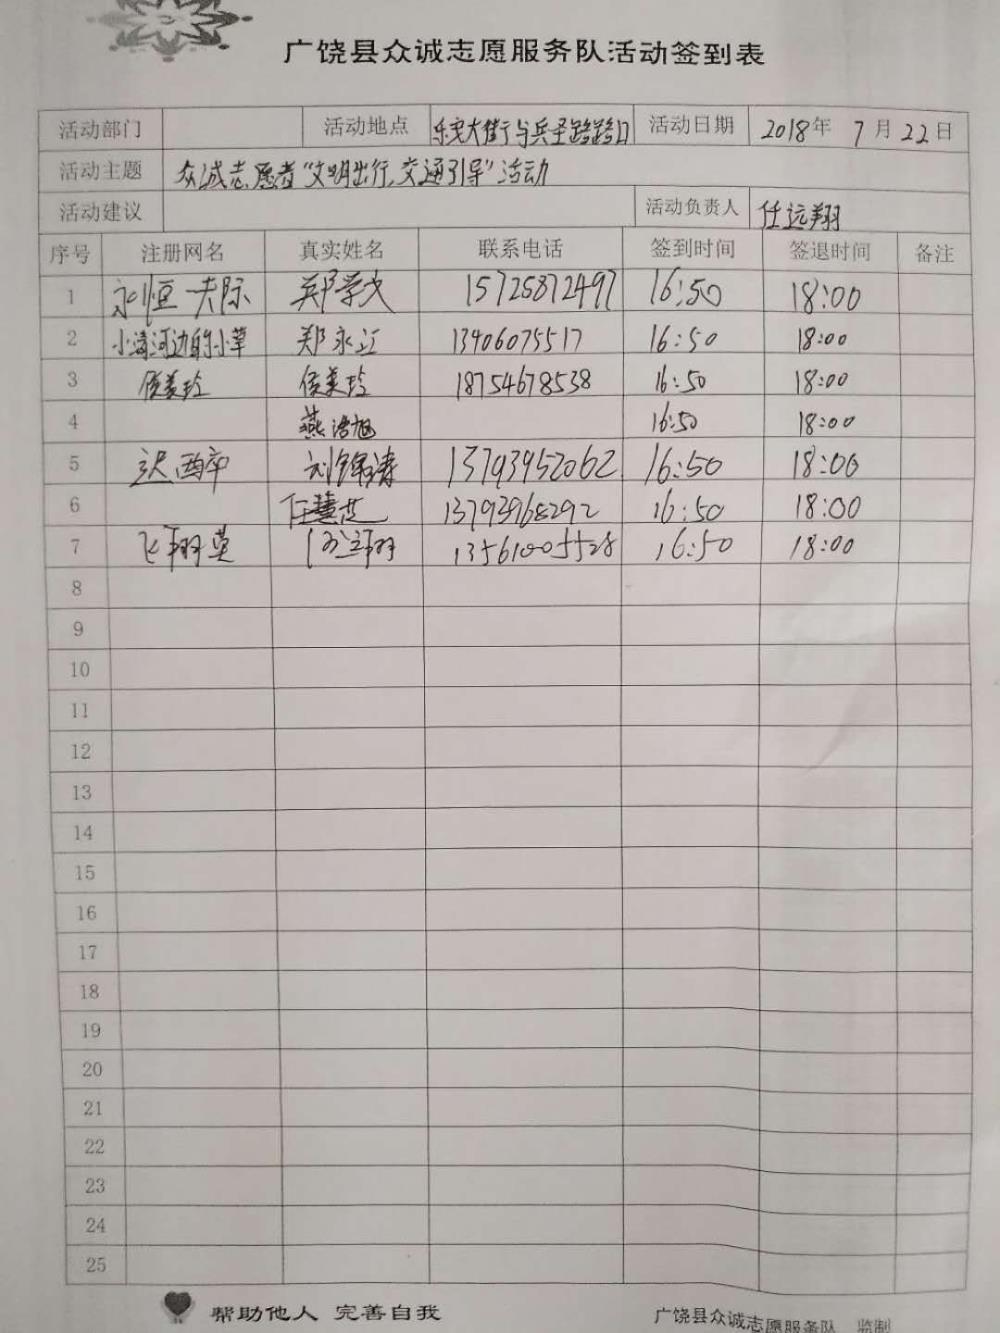 广饶县众诚志愿服务队活动签到表
活动部门 活动地点 乐安大街与兵圣路路口 活动日期 2018年 7月22日
活动主题 众诚志愿者“文明出行,交通引导”活动
活动建议 活动负责人 任远翔
序号 注册网名 真实姓名 联系电话 签到时间 签退时间 备注
1 永恒 15725872497 16:50 18:00
2 小清河边的小草 郑永江 13406075517 16:50 18:00
3 侯美玲 侯美玲 18754678538 16:50 18:00
4 燕浩旭 16:50 18:00
5 刘锦涛 13793952062 16:50 18:00
6 任慧芝 13793968292 16:50 18:00
7 飞翔 13561005528 16:50 18:00
8
9
10
11
12
13
14
15
16
17
18
19
20
21
22
23
24
25
帮助他人 完善自我
广饶县众诚志愿服务队 监制